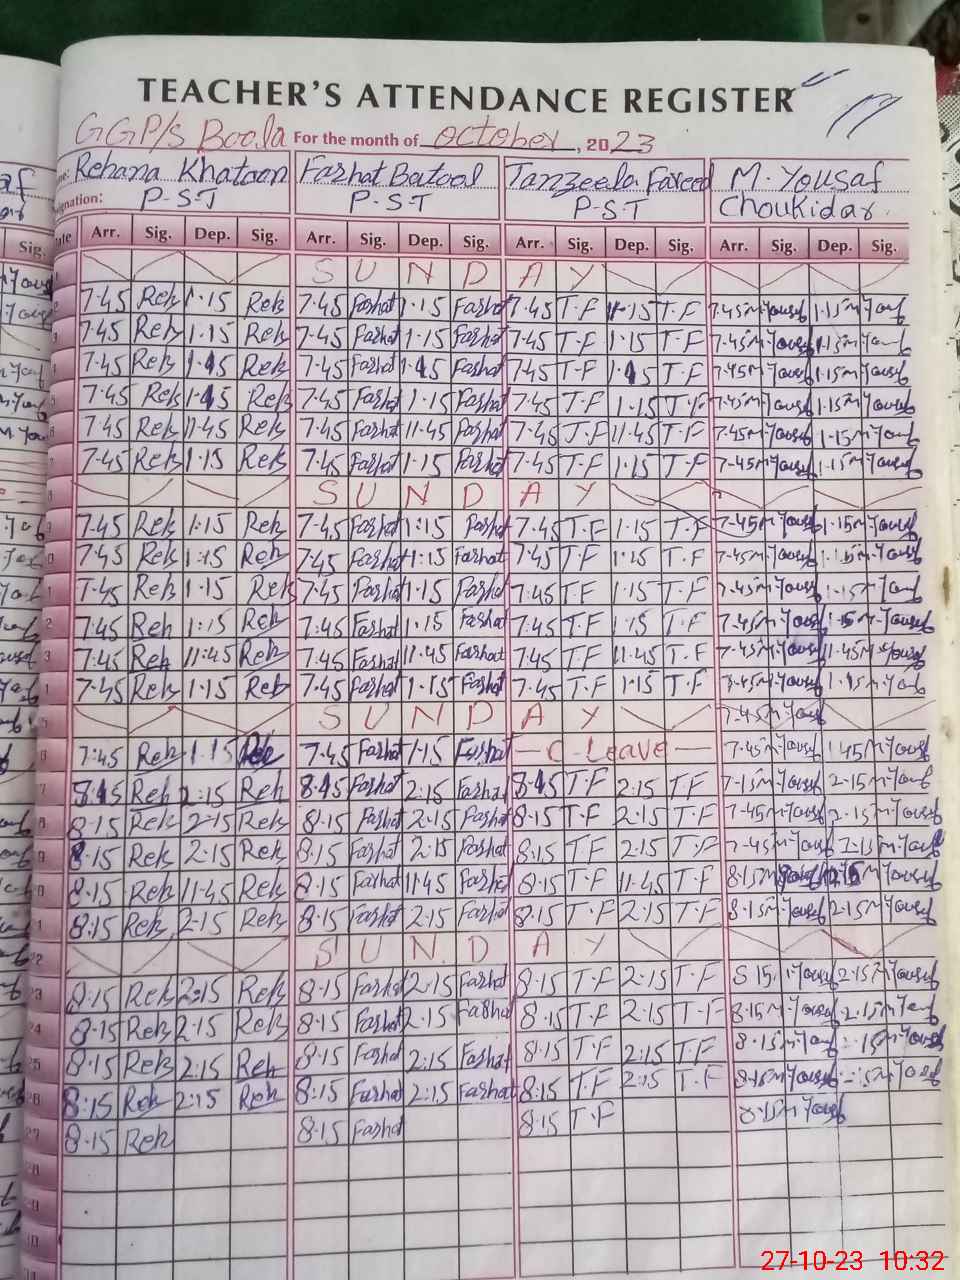 TEACHER'S ATTENDANCE REGISTER
GGP/s Boola For the month of October, 2023
Rehana Khatoon Farhat Batool Tanzeela Fareed M. Yousaf
signation: P-S-T P-S-T P-S-T Choukidar
Arr. Sig. Dep. Sig. Arr. Sig. Dep. Sig. Arr. Sig. Dep. Sig. Arr. Sig. Dep. Sig.
S U N D A Y
7-45 Reh 1-15 Reh 7-45 Farhat 1-15 Farhat 7-45 T-F 1-15 T-F 7-45 M-Yousaf 1-15 M-Yousaf
7-45 Reh 1-15 Reh 7-45 Farhat 1-15 Farhat 7-45 T-F 1-15 T-F 7-45 M-Yousaf 1-15 M-Yousaf
7-45 Reh Reh 7-45 Farhat Farhat 7-45 T-F T-F 7-45 M-Yousaf 1-15 M-Yousaf
7-45 Reh Reh 7-45 Farhat 1-15 Farhat 7-45 T-F 1-15 T-F 7-45 M-Yousaf 1-15 M-Yousaf
7-45 Reh 11-45 Reh 7-45 Farhat 11-45 Farhat 7-45 T-F 11-45 T-F 7-45 M-Yousaf 1-15 M-Yousaf
7-45 Reh 1-15 Reh 7-45 Farhat 1-15 Farhat 7-45 T-F 1-15 T-F 7-45 M-Yousaf 1-15 M-Yousaf
S U N D A Y
7-45 Reh 1:15 Reh 7-45 Farhat 1:15 Farhat 7-45 T-F 1-15 T-F 7-45 M-Yousaf 1-15 M-Yousaf
7-45 Reh 1:15 Reh 7-45 Farhat 1:15 Farhat 7-45 T-F 1:15 T-F 7-45 M-Yousaf 1-15 M-Yousaf
7-45 Reh 1-15 Reh 7-45 Farhat 1-15 Farhat 7-45 T-F 1-15 T-F 7-45 M-Yousaf 1-15 M-Yousaf
7-45 Reh 1:15 Reh 7:45 Farhat 1-15 Farhat 7-45 T-F 1:15 T-F 7-45 M-Yousaf M-Yousaf
7:45 Reh 11:45 Reh 7:45 Farhat 11-45 Farhat 7-45 T-F 11-45 T-F 7-45 M-Yousaf 11-45 M-Yousaf
7-45 Reh 1-15 Reh 7-45 Farhat 1-15 Farhat 7-45 T-F 1-15 T-F 7-45 M-Yousaf M-Yousaf
S U N D A Y 7-45 M-Yousaf
7:45 Reh 1-15 Reh 7-45 Farhat 1-15 Farhat — C-Leave — 7-45 M-Yousaf 1-45 M-Yousaf
Reh 2:15 Reh Farhat 2:15 Farhat T-F 2-15 T-F M-Yousaf 2-15 M-Yousaf
8-15 Reh 2-15 Reh 8-15 Farhat 2-15 Farhat 8-15 T-F 2-15 T-F 7-45 M-Yousaf 2-15 M-Yousaf
8-15 Reh 2-15 Reh 8-15 Farhat 2-15 Farhat 8-15 T-F 2-15 T-F 7-45 M-Yousaf M-Yousaf
8-15 Reh 11-45 Reh 8-15 Farhat 11-45 Farhat 8-15 T-F 11-45 T-F 8-15 M-Yousaf
8-15 Reh 2-15 Reh 8-15 Farhat 2-15 Farhat 8-15 T-F 2-15 T-F 8-15 M-Yousaf 2-15 M-Yousaf
S U N D A Y
23 8-15 Reh 2-15 Reh 8-15 Farhat 2-15 Farhat 8-15 T-F 2-15 T-F 8-15 M-Yousaf 2-15 M-Yousaf
24 8-15 Reh 2-15 Reh 8-15 Farhat 2-15 Farhat 8-15 T-F 2-15 T-F 8-15 M-Yousaf 2-15 M-Yousaf
8-15 Reh 2-15 Reh 8-15 Farhat 2:15 Farhat 8-15 T-F 2-15 T-F 8-15 M-Yousaf M-Yousaf
26 8:15 Reh 2:15 Reh 8:15 Farhat 2:15 Farhat 8:15 T-F 2:15 T-F 8-15 M-Yousaf M-Yousaf
27 8-15 Reh 8-15 Farhat 8-15 T-F 8-15 M-Yousaf
27-10-23 10:32